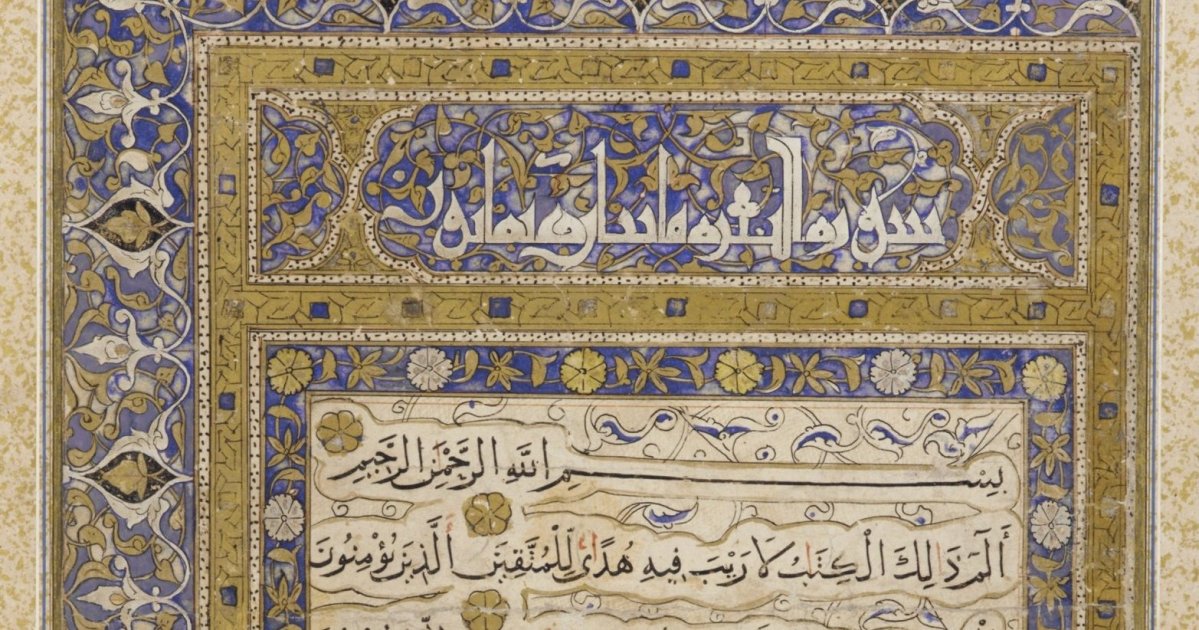 سورة البقرة مايتان وثمانون
بِسْمِ اللَّهِ الرَّحْمَٰنِ الرَّحِيمِ
الٓمٓ ذَالِكَ الْكِتَابُ لَا رَيْبَ فِيهِ هُدًى لِّلْمُتَّقِينَ الَّذِينَ يُؤْمِنُونَ